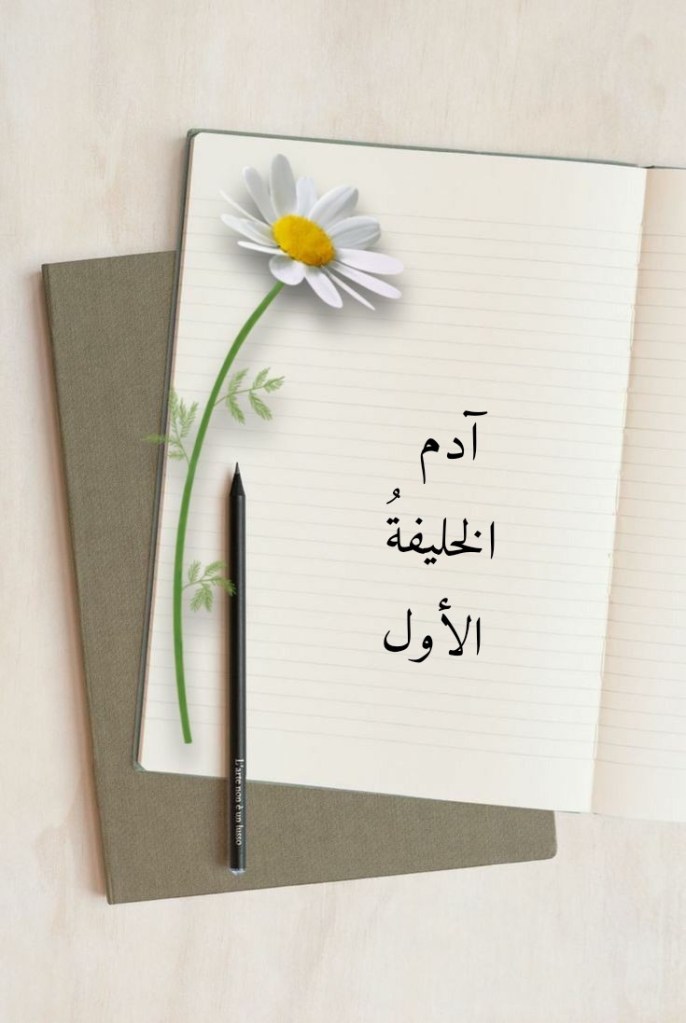 آدم
الخليفةُ
الأول
L'arte non è un lusso